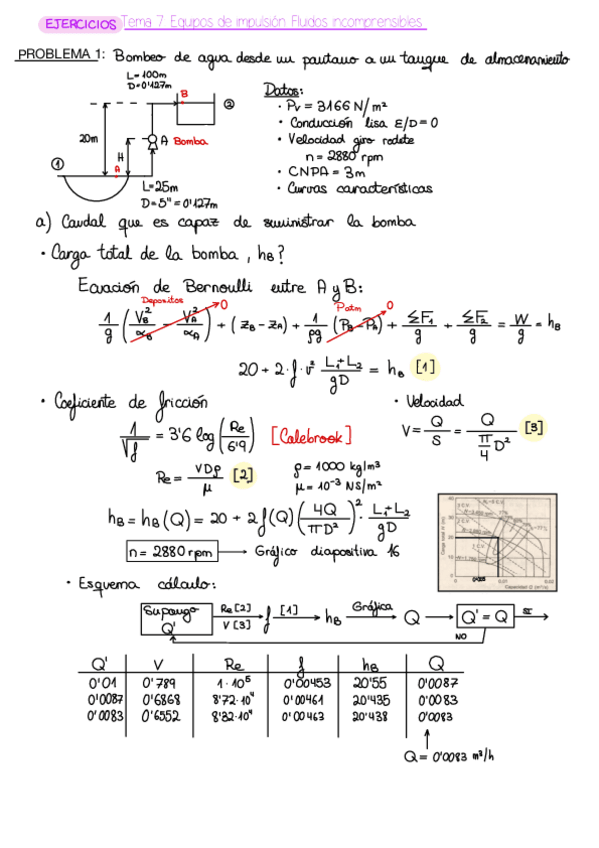 EJERCICIOS Tema 7 Equipos de impulsión Fluidos incomprensibles
PROBLEMA 1: Bombeo de agua desde un pantano a un tanque de almacenamiento
L=100m
D=0'127m
B
2
20m
H
A Bomba
1
A
L=25m
D=5"=0'127m
Datos:
· Pv = 3166 N/m²
· Conducción lisa E/D=0
· Velocidad giro rodete
n = 2880 rpm
· CNPA = 3m
· Curvas características
a) Caudal que es capaz de suministrar la bomba
· Carga total de la bomba, hB?
Ecuación de Bernoulli entre A y B:
Depositos 0 Patm 0
1/g (VB²/αB - VA²/αA) + (ZB - ZA) + 1/ρg (PB - PA) + ΣF1/g + ΣF2/g = W/g = hB
20 + 2·f·v² (L1+L2)/gD = hB [1]
· Coeficiente de fricción
1/√f = 3'6 log (Re/6'9) [Calebrook]
Re = VDρ/μ [2]
ρ = 1000 kg/m³
μ = 10⁻³ NS/m²
· Velocidad
V = Q/S = Q/(π/4 D²) [3]
hB = hB(Q) = 20 + 2f(Q) (4Q/πD²)² · (L1+L2)/gD
n = 2880 rpm → Gráfico diapositiva 16
· Esquema cálculo:
Supongo Q' Re [2] V [3] f [1] hB Gráfica Q Q' = Q SI
NO
Q' V Re f hB Q
0'01 0'789 1·10⁵ 0'00453 20'55 0'0087
0'0087 0'6868 8'72·10⁴ 0'00461 20'435 0'0083
0'0083 0'6552 8'32·10⁴ 0'00463 20'438 0'0083
Q = 0'0083 m³/h